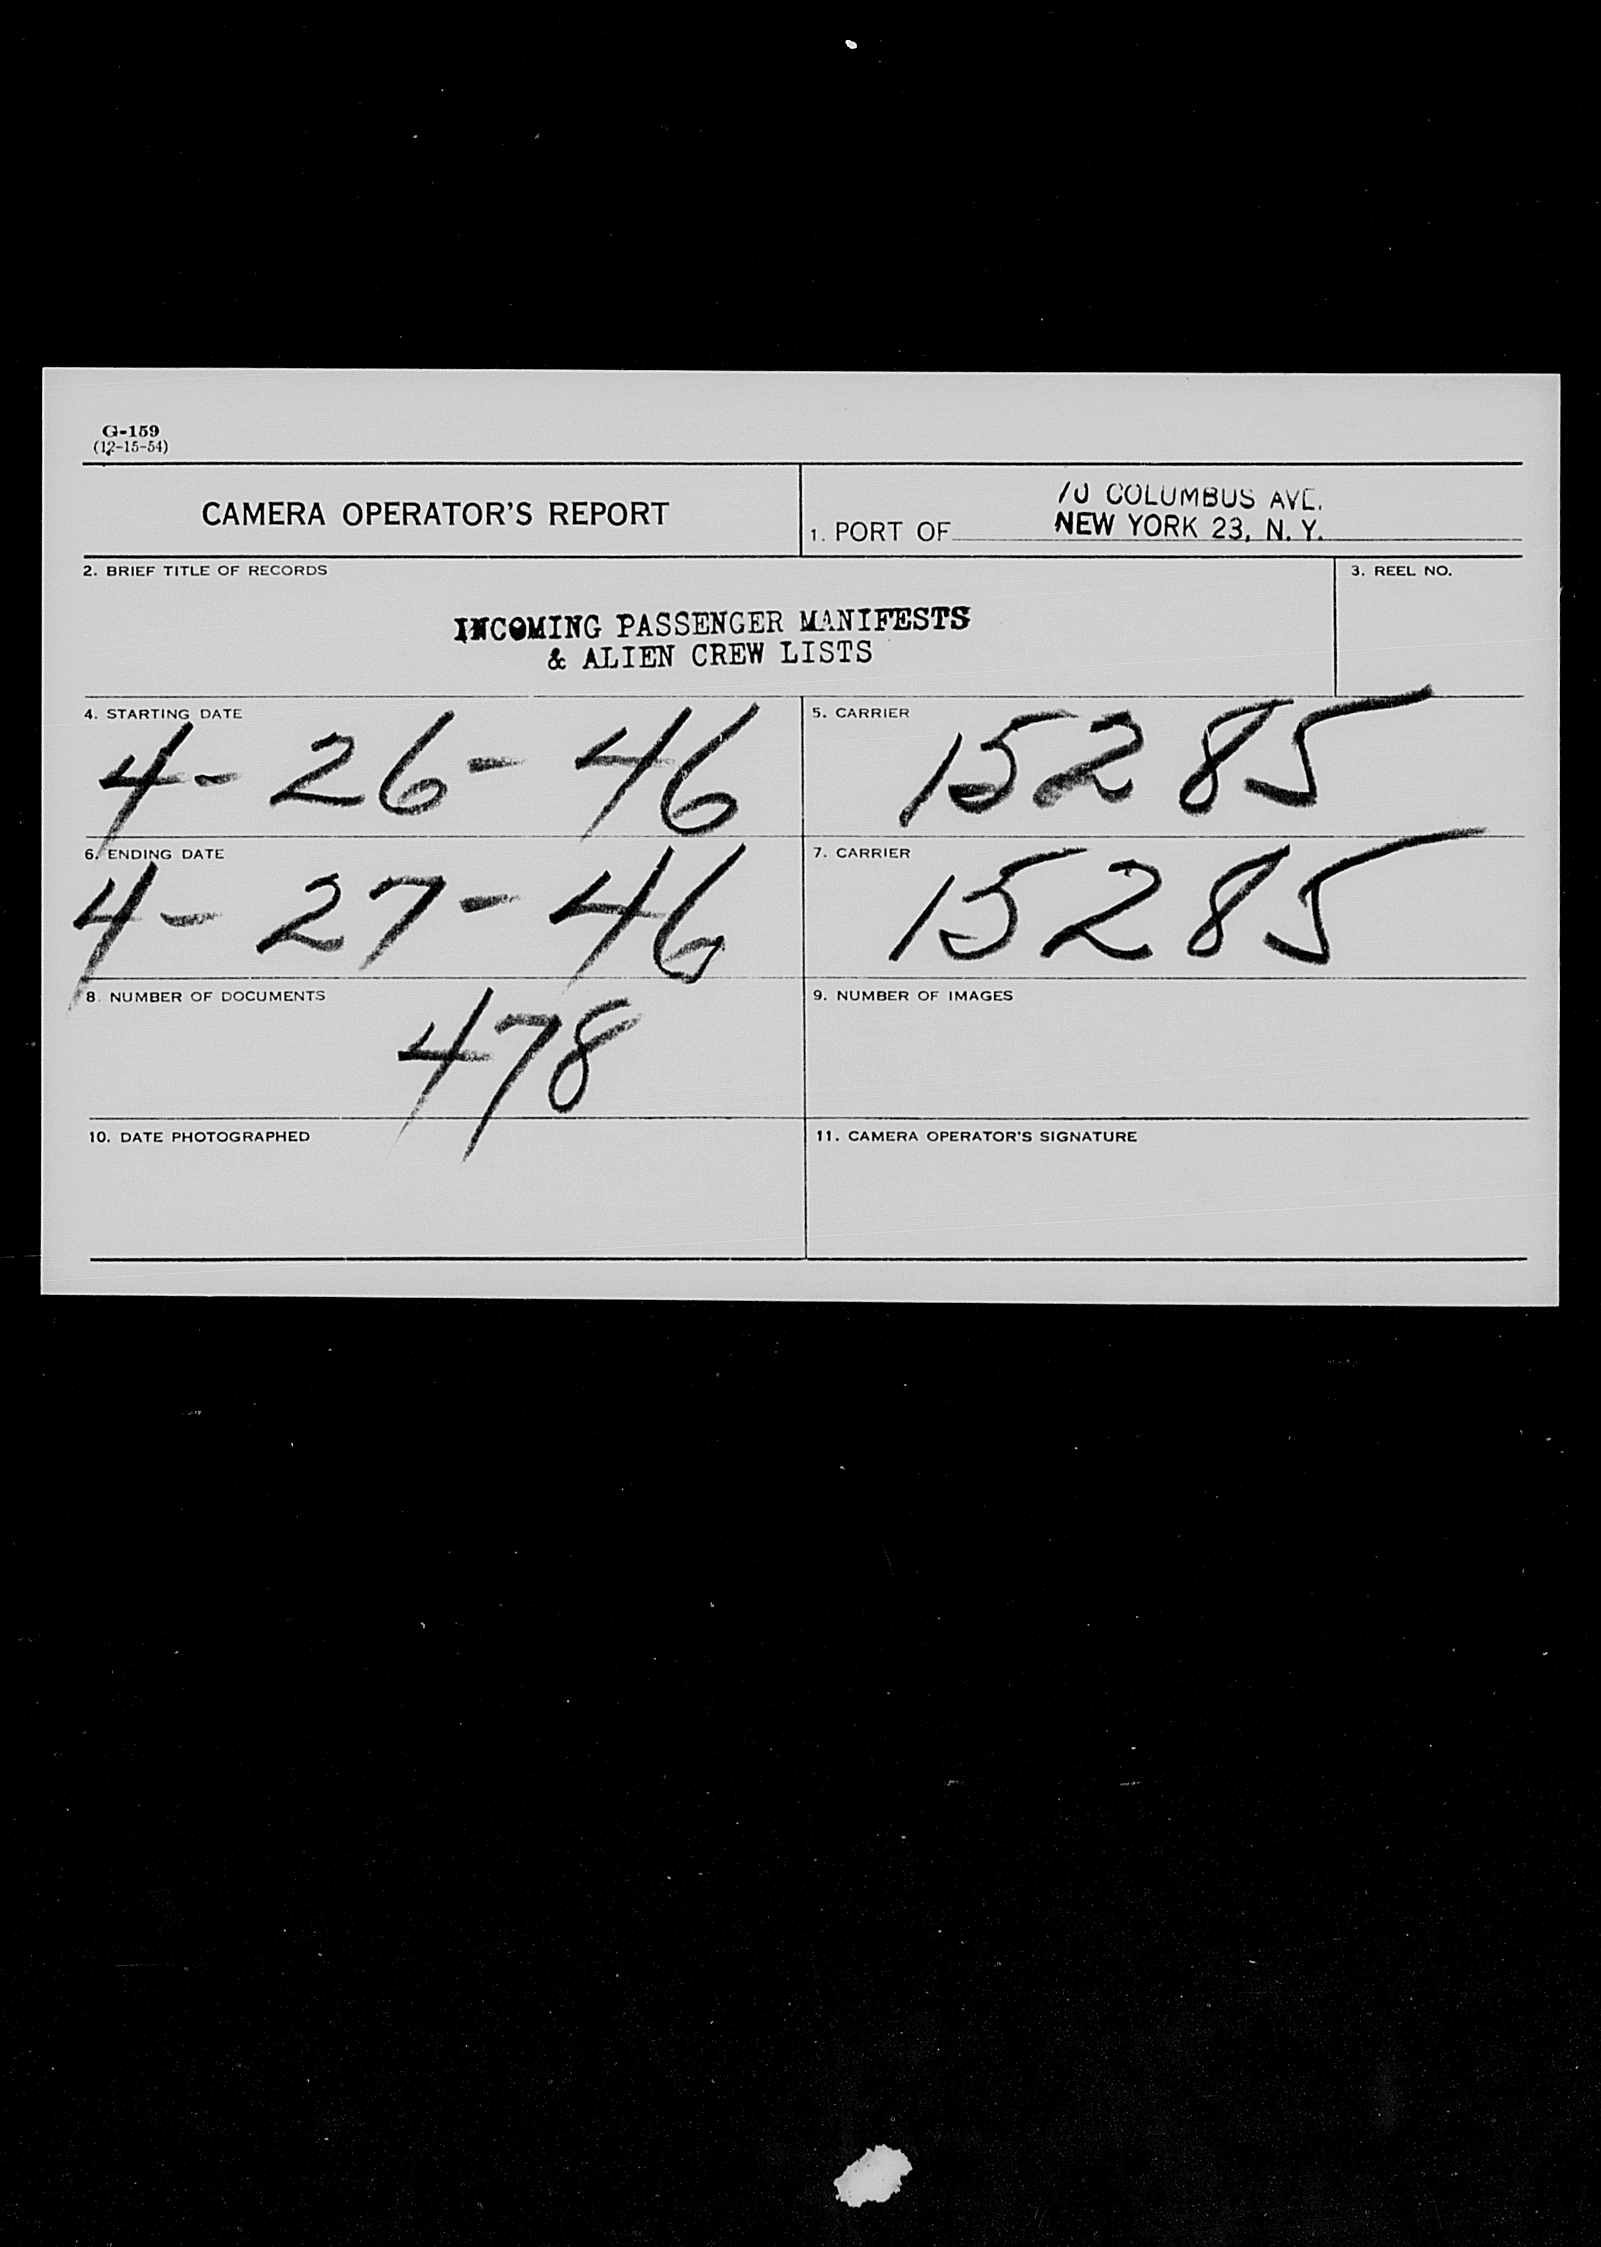 G-159
(12-15-54)
CAMERA OPERATOR'S REPORT
70 COLUMBUS AVE.
1. PORT OF NEW YORK 23, N. Y.
2. BRIEF TITLE OF RECORDS
3. REEL NO.
INCOMING PASSENGER MANIFESTS
& ALIEN CREW LISTS
4. STARTING DATE
4-26-46
5. CARRIER
15285
6. ENDING DATE
4-27-46
7. CARRIER
15285
8. NUMBER OF DOCUMENTS
478
9. NUMBER OF IMAGES
10. DATE PHOTOGRAPHED
11. CAMERA OPERATOR'S SIGNATURE